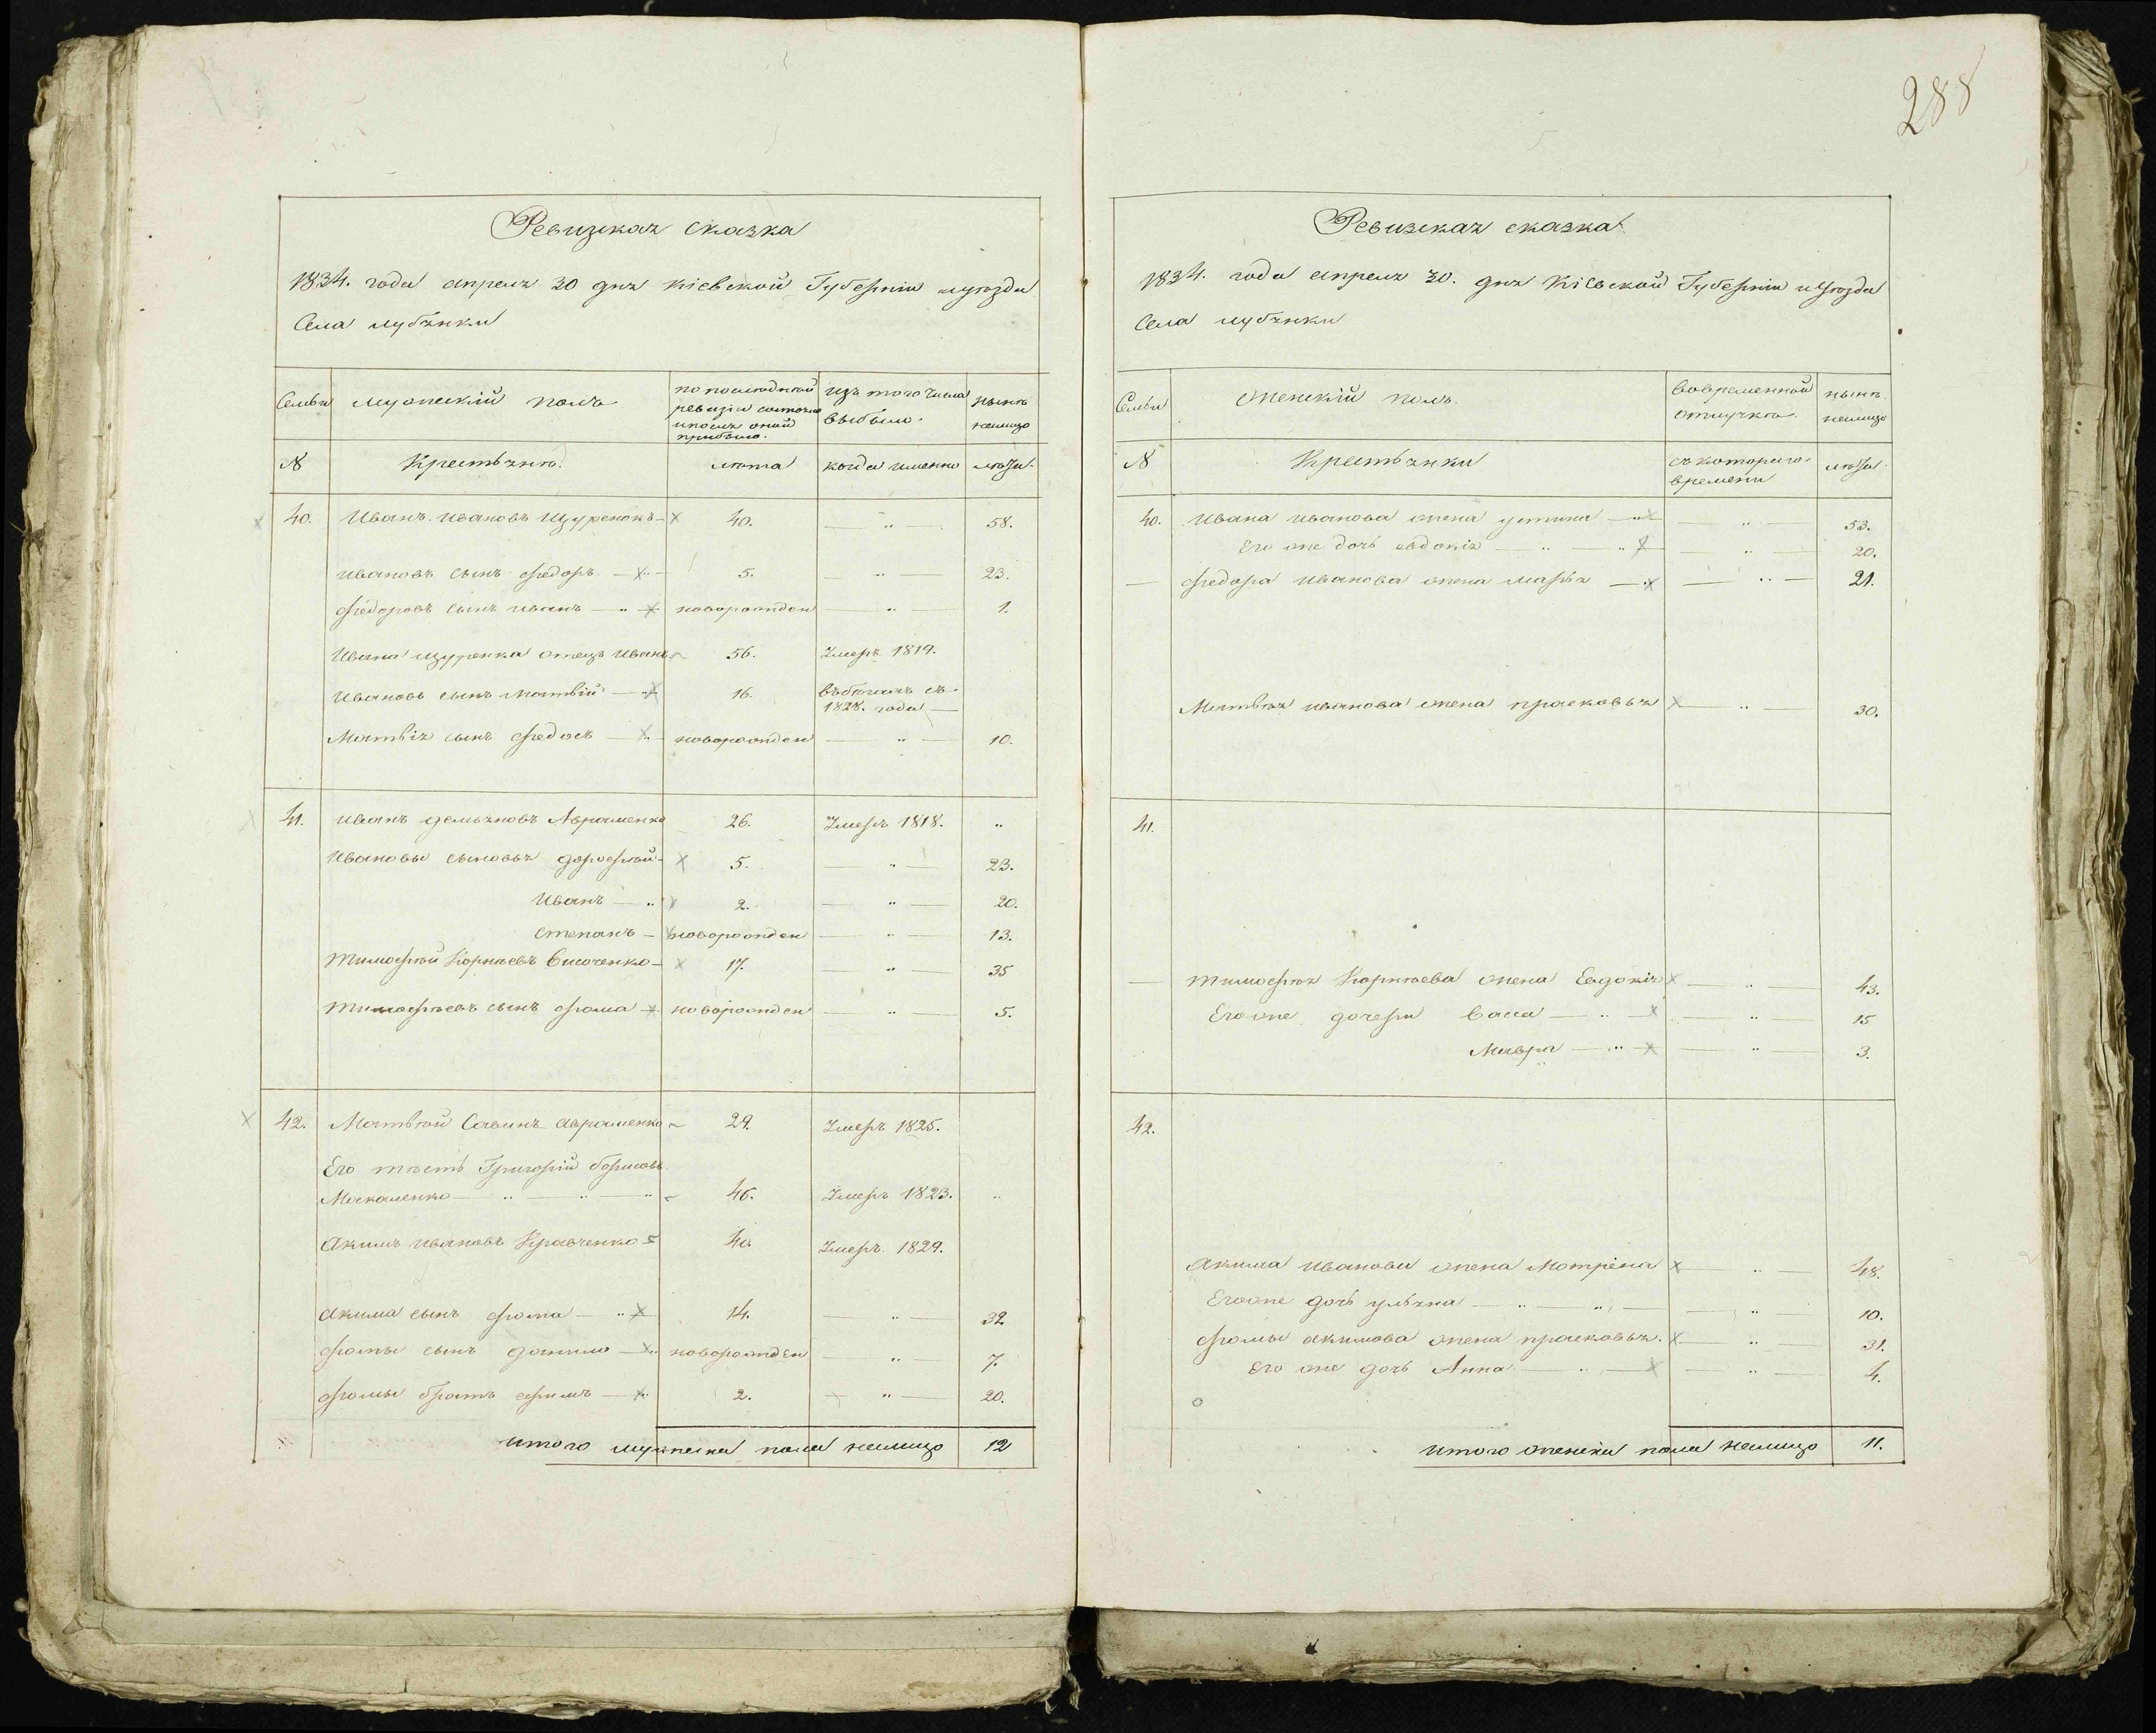 288
Ревизская сказка
1834. года апреля 30 дня Кіевской Губерніи и уѣзда
Села лубянки
Семьи
мужескій полъ
по последней ревизіи состояло и послѣ оной прибыло.
изъ того числа выбыло.
нынѣ налицо
№
Крестьяне.
лѣта
когда именно
лѣта.
40. Иванъ Ивановъ Щуренокъ 40. 58.
Ивановъ сынъ Федоръ 5. 23.
Федоровъ сынъ иванъ новорожден 1.
Ивана щуренка отецъ Иванъ 56. Умеръ 1819.
Ивановъ сынъ Матвій 16. въ бегахъ съ
1828. года
Матвія сынъ Федосъ новорожден 10.
41. иванъ демьяновъ Авраменко 26. Умеръ 1818.
Ивановы сыновья дорофѣй 5. 23.
Иванъ 2. 20.
степанъ новорожден 13.
Тимофѣй Корнѣевъ 17. 35
Тимофѣевъ сынъ фома новорожден 5.
42. Матвѣй Савинъ авраменко 29. Умеръ 1825.
Его тѣсть Григорій борисовъ
Москаленко 46. Умеръ 1823.
Акимъ ивановъ Кравченко 40. Умеръ 1829.
Акима сынъ фома 14. 32
фомы сынъ данило новорожден 7.
фомы братъ ефимъ 2. 20.
итого мужеска пола налицо 12
Ревизская сказка
1834. года апреля 30. дня Кіевской Губерніи и уѣзда
Села лубянки
Семьи
женскій полъ.
во временной отлучкѣ.
нынѣ налицо
№
Крестьянки
съ котораго времени
лѣта.
40. Ивана иванова жена устина 53.
Его же дочь евдокія 20.
федора иванова жена марья 21.
Матвѣя иванова жена прасковья 30.
41.
тимофѣя Корнѣева жена Евдокія 43.
Егоже дочери Васса 15
Мавра 3.
42.
Акима Иванова жена Мотріона 48.
Егоже дочь ульяна 10.
фомы акимова жена прасковья. 31.
его же дочь Анна 4.
итого женска пола налицо 11.